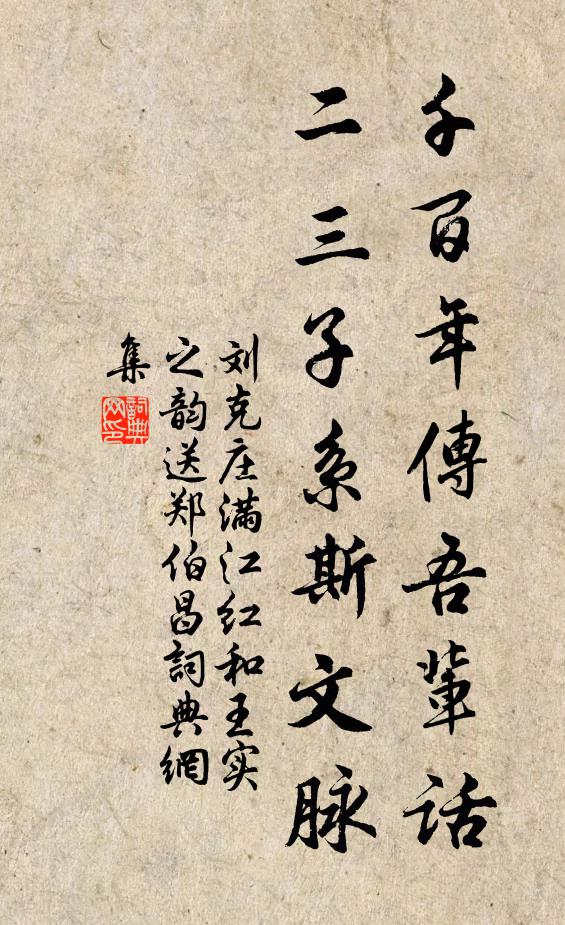 千百年傳吾輩話
二三子系斯文脉
刘克庄满江红和王实
之韵送郑伯昌詞典網
集
詞典网印